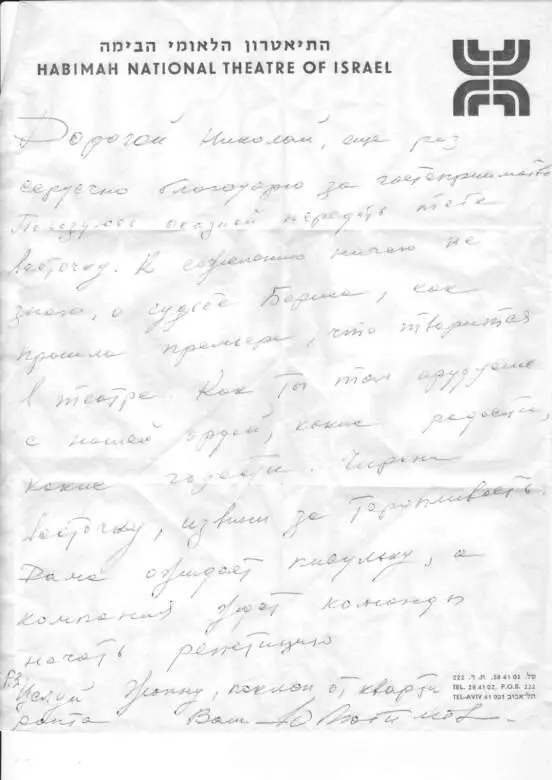 התיאטרון הלאומי הבימה
HABIMAH NATIONAL THEATRE OF ISRAEL
Дорогой Николай, еще раз
сердечно благодарю за гостеприимство
Пользуюсь оказией передать тебе
весточку. К сожалению ничего не
знаю, о судьбе Бориса, как
прошла премьера, что творится
в театре. Как Ты там
с нашей ордой, какие радости,
какие горести. Черкни
весточку, извини за торопливость.
Дама ожидает писульку, а
компания ждет команды
начать репетицию
Целуй Жанну, поклон от кварти
ранта Ваш Ю Любимов.
טל. 28 41 02, ת. ד. 222
TEL. 28 41 02, P.O.B. 222
TEL-AVIV 61 001 תל-אביב